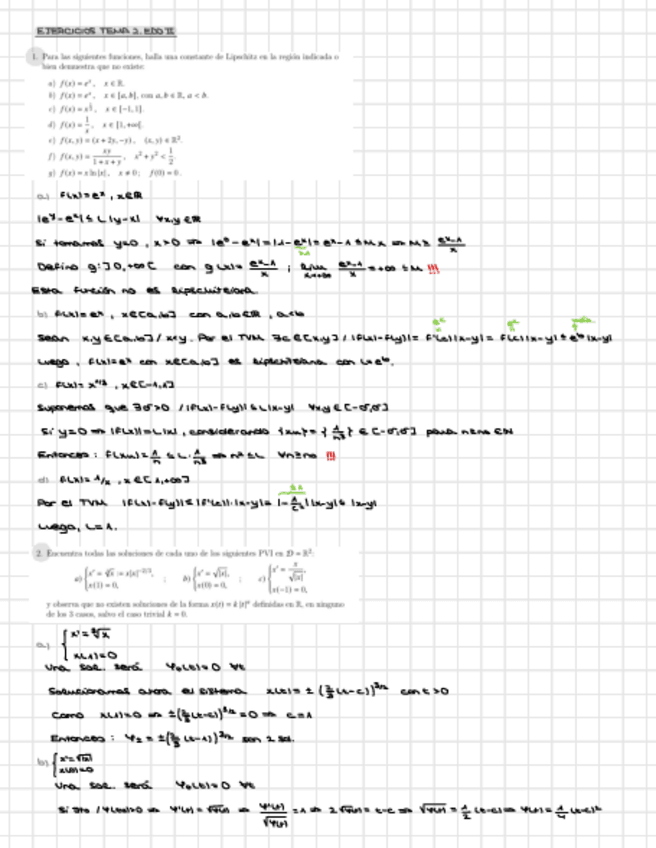 EJERCICIOS TEMA 3. EDO II
1. Para las siguientes funciones, halla una constante de Lipschitz en la región indicada o
bien demuestra que no existe:
a) f(x) = eˣ, x ∈ ℝ.
b) f(x) = eˣ, x ∈ [a, b], con a, b ∈ ℝ, a < b.
c) f(x) = x^{1/3}, x ∈ [-1, 1].
d) f(x) = 1/x, x ∈ [1, +∞[.
e) f(x, y) = (x + 2y, -y), (x, y) ∈ ℝ².
f) f(x, y) = xy/(1 + x + y), x² + y² < 1/2
g) f(x) = x ln|x|, x ≠ 0; f(0) = 0.
a) f(x) = eˣ, x ∈ ℝ
|eʸ - eˣ| ≤ L |y - x| ∀x,y ∈ ℝ
Si tomamos y=0, x>0 ⇒ |e⁰ - eˣ| = |1 - eˣ| = eˣ - 1 ≤ M x ⇒ M ≥ (eˣ - 1)/x
Defino g: ]0, +∞[ con g(x) = (eˣ - 1)/x ; lim (eˣ - 1)/x = +∞ ≤ M !!!
Esta función no es lipschitziana.
b) f(x) = eˣ, x ∈ [a,b] con a,b ∈ ℝ, a<b
Sean x,y ∈ [a,b] / x<y. Por el TVM ∃c ∈ [x,y] / |f(x) - f(y)| = f'(c)|x-y| = f(c)|x-y| ≤ eᵇ|x-y|
Luego, f(x) = eˣ con x ∈ [a,b] es lipschitziana con L = eᵇ.
c) f(x) = x^{1/3}, x ∈ [-1,1]
Suponemos que ∃σ>0 / |f(x) - f(y)| ≤ L|x-y| ∀x,y ∈ [-σ,σ]
Si y=0 ⇒ |f(x)| ≤ L|x|, considerando {xₙ} = {1/n³} ∈ [-σ,σ] para n ≥ n₀ ∈ ℕ
Entonces: f(xₙ) = 1/n ≤ L · 1/n³ ⇒ n² ≤ L ∀n ≥ n₀ !!!
d) f(x) = 1/x, x ∈ [1,+∞[
Por el TVM |f(x) - f(y)| ≤ |f'(c)|·|x-y| = |-1/c²| |x-y| ≤ |x-y|
Luego, L = 1.
2. Encuentra todas las soluciones de cada uno de los siguientes PVI en D = ℝ²:
a) { x' = ∛x := x|x|^{-2/3}, x(1) = 0, ; b) { x' = √|x|, x(0) = 0, ; c) { x' = x/√|x|, x(-1) = 0,
y observa que no existen soluciones de la forma x(t) = k |t|ᵅ definidas en ℝ, en ninguno
de los 3 casos, salvo el caso trivial k = 0.
a) { x' = ∛x
x(1) = 0
Una sol. será φ₀(t) = 0 ∀t
Solucionamos ahora el sistema x(t) = ± (2/3 (t-c))^{3/2} con t>0
Como x(1) = 0 ⇒ ±(2/3 (1-c))^{3/2} = 0 ⇒ c = 1
Entonces: φ₂ = ±(2/3 (t-1))^{3/2} son 2 sol.
b) { x' = √|x|
x(0) = 0
Una sol. será φ₀(t) = 0 ∀t
Si φ(t)>0 ⇒ φ'(t) = √φ(t) ⇒ φ'(t)/√φ(t) = 1 ⇒ 2√φ(t) = t-c ⇒ √φ(t) = 1/2 (t-c) ⇒ φ(t) = 1/4 (t-c)²